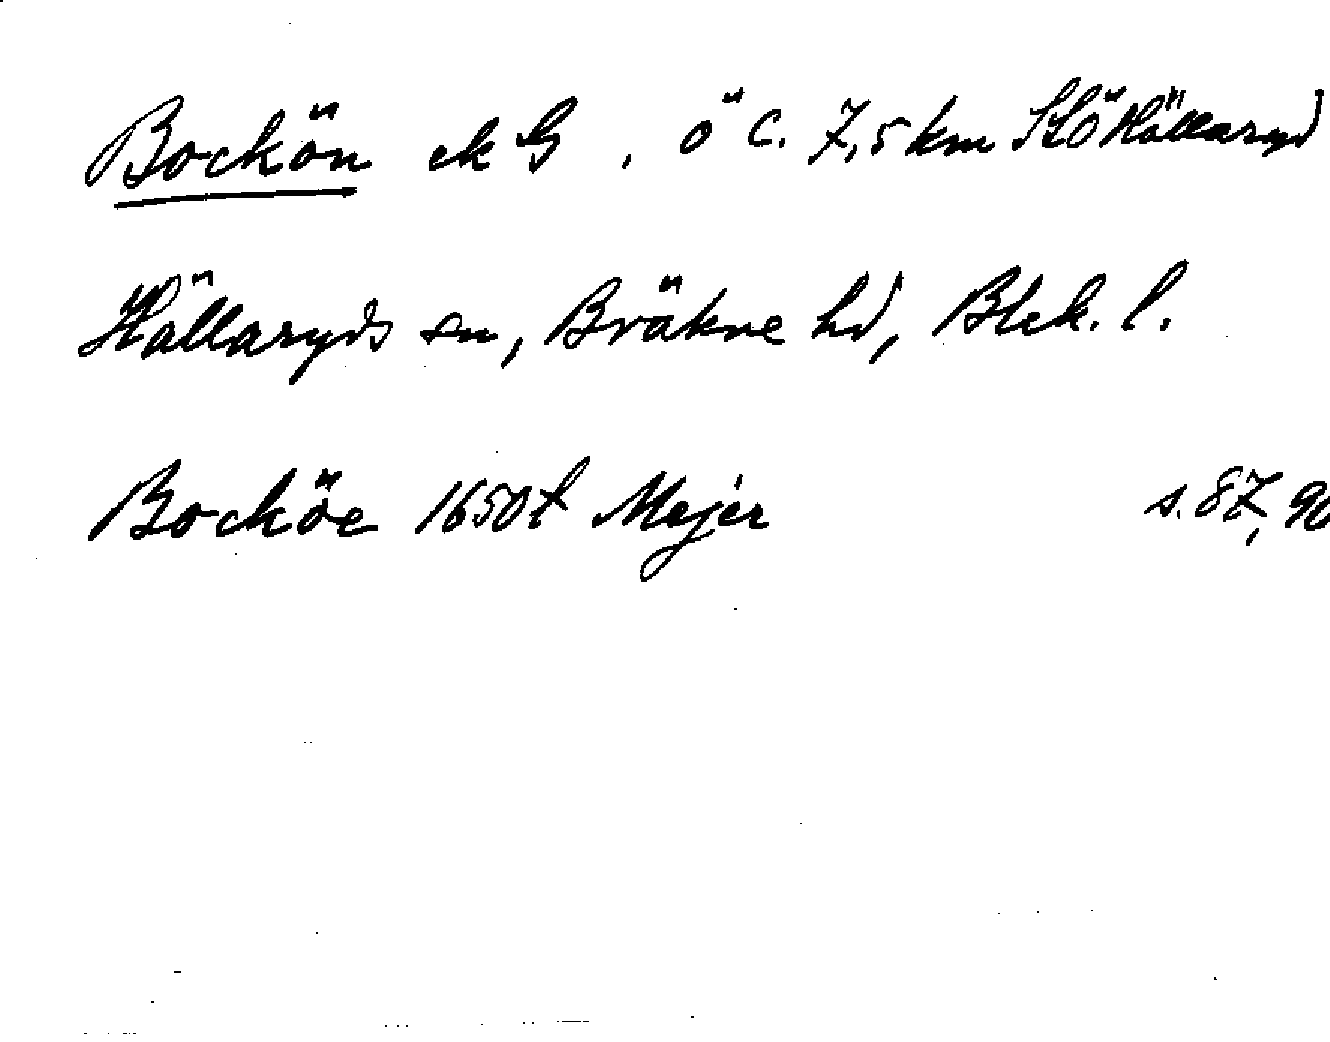 Bockön ek G, ö c. 7,5 km SSÖ Hällaryd
Hällaryds sn, Bräkne hd, Blek. l.
Bocköe 1650t Mejer s. 87, 90